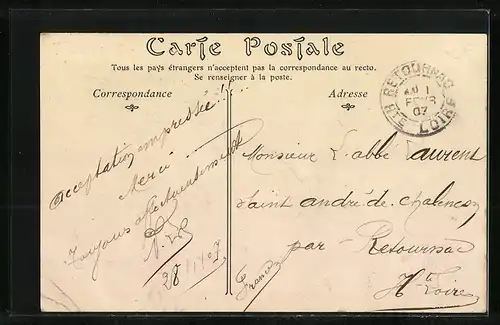 Carte Postale
Tous les pays étrangers n'acceptent pas la correspondance au recto.
Se renseigner à la poste.
Correspondance
Adresse
RETOURNAC
FEVR
07
HTE LOIRE
acceptation empressée!!!
Merci
Toujours affectueusement
Monsieur L'abbé Laurent
Saint André-de-Chalencon
par - Retournac
Hte Loire
(France)